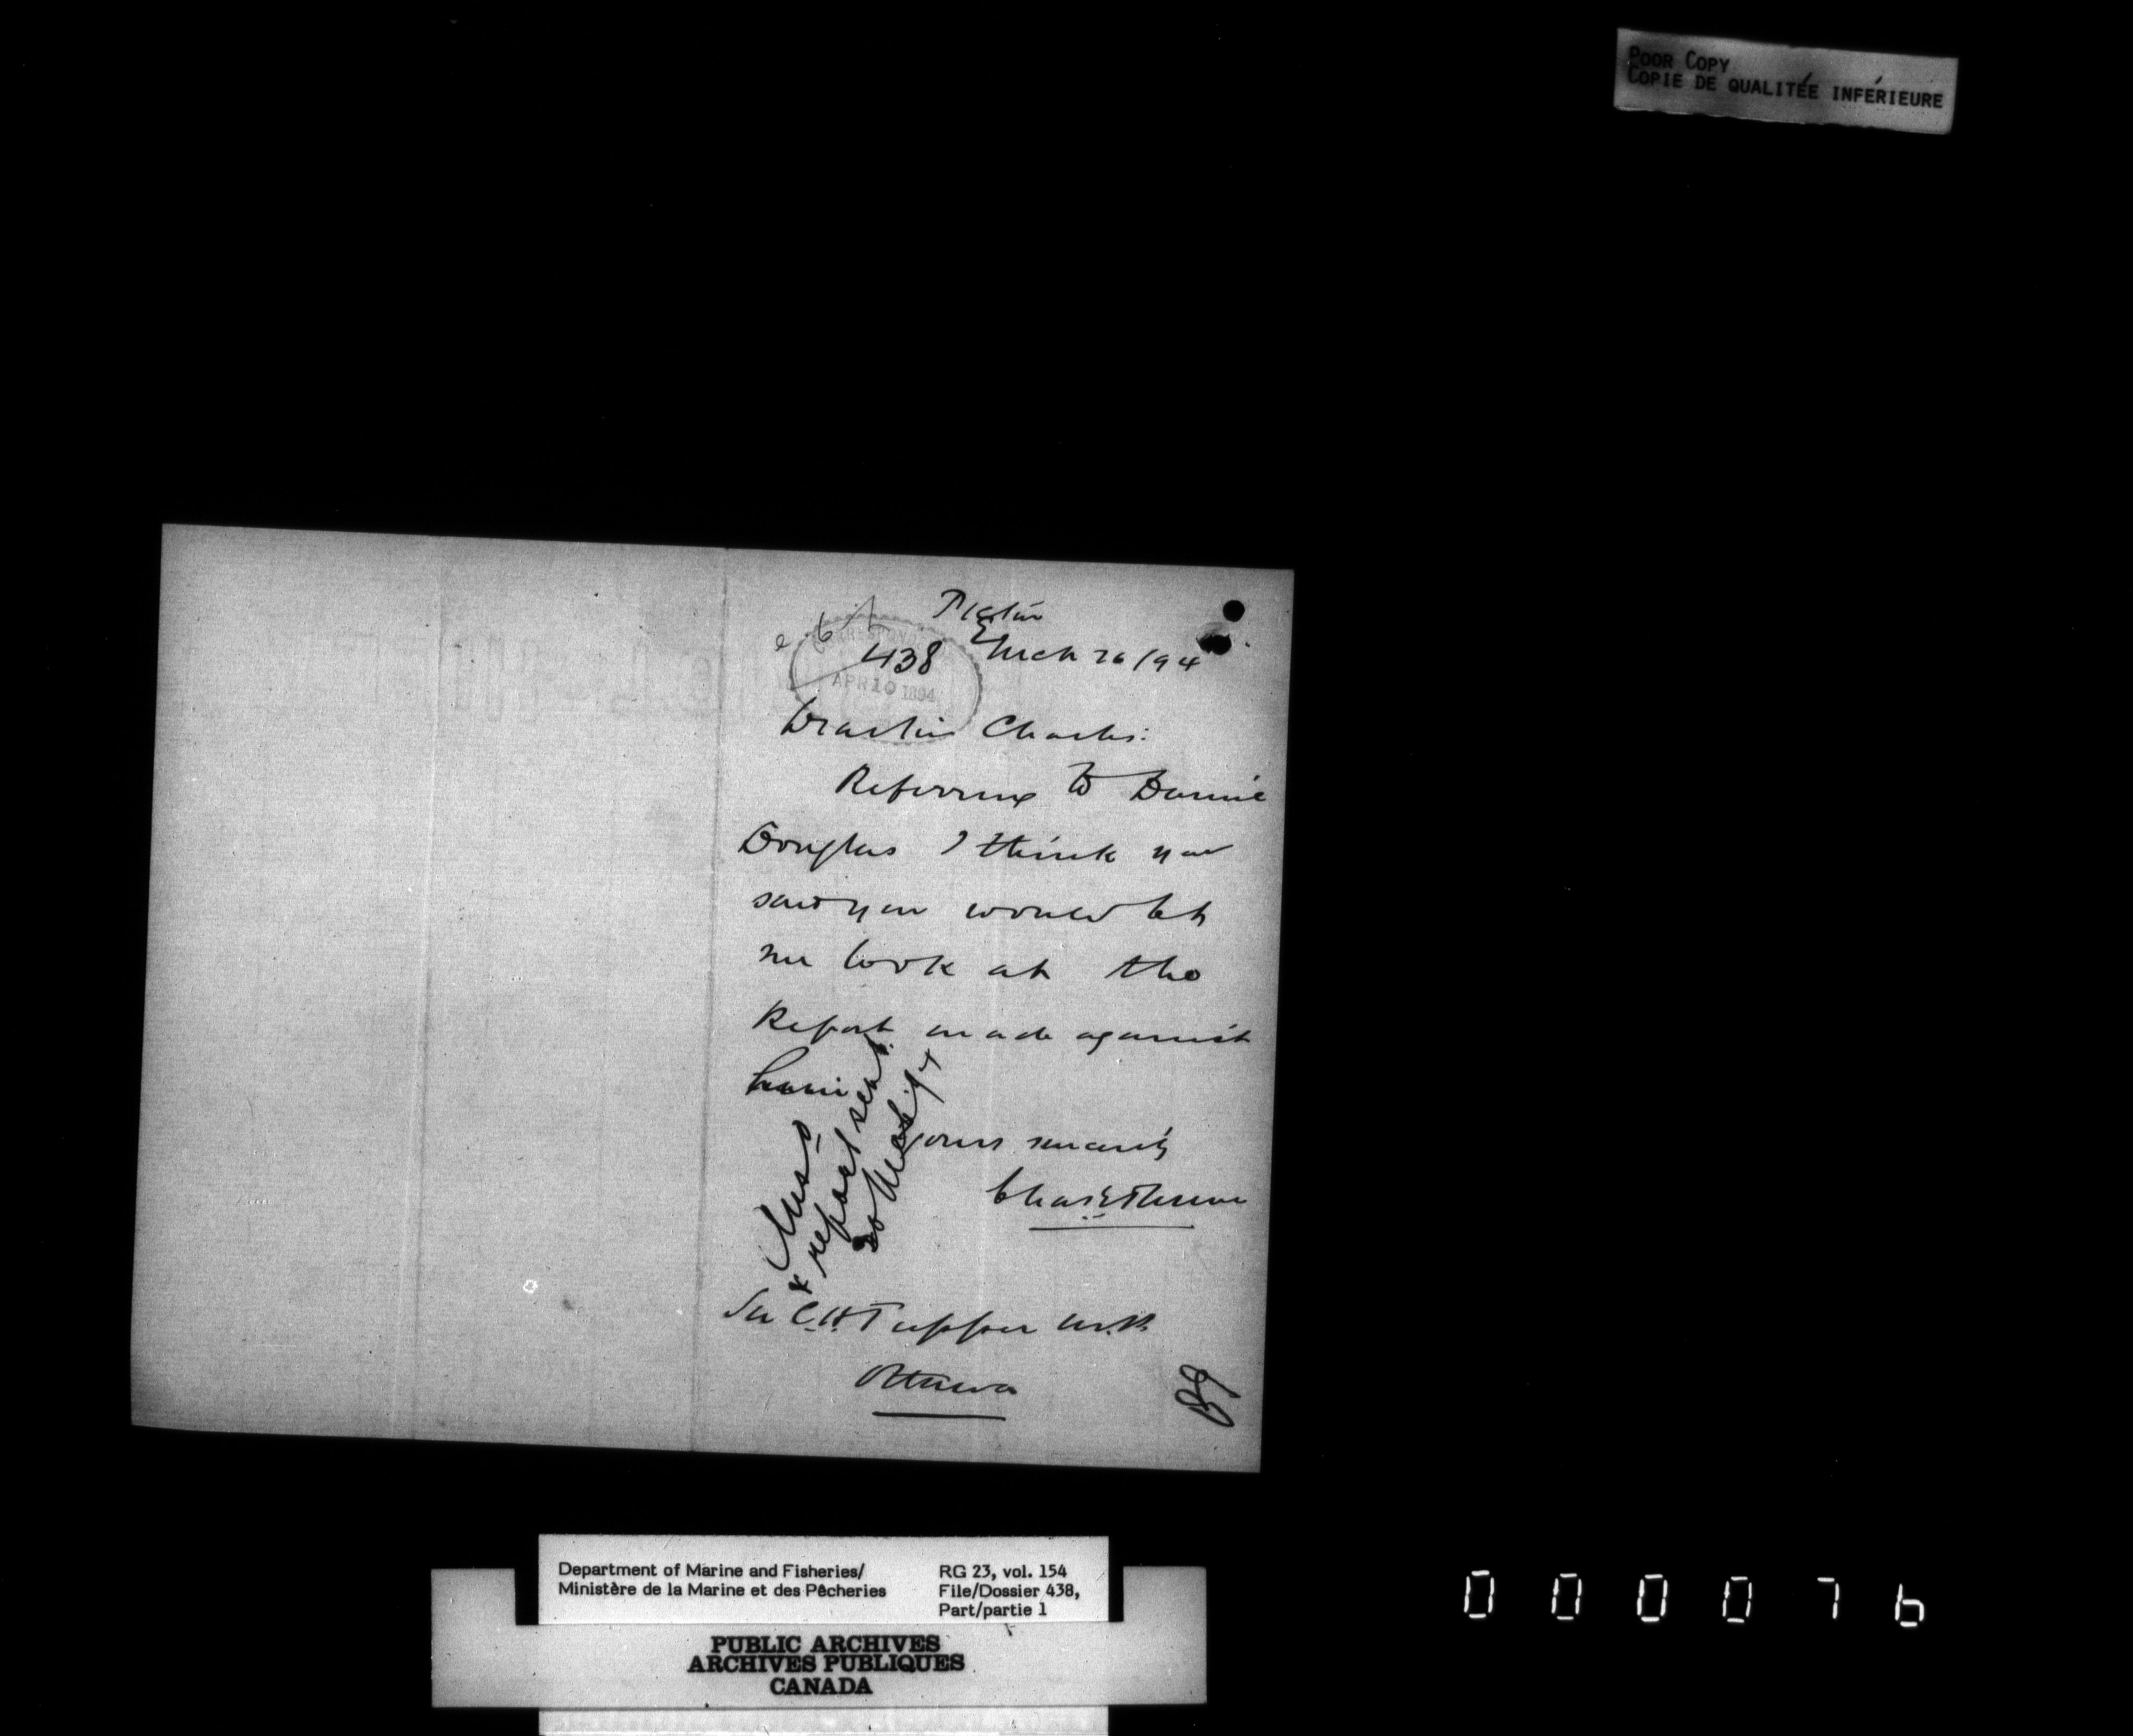 POOR COPY
COPIE DE QUALITÉE INFÉRIEURE
Pictou
438 Mch 26/94
CORRESPOND
APR 10 1894
Dear Sir Charles:
Referring to
Douglas I think you
said you would let
me look at the
Report made against
him
yours sincerely
Chas
report sent
Sir C.H. Tupper M.P.
Ottawa
89
Department of Marine and Fisheries/
Ministère de la Marine et des Pêcheries
RG 23, vol. 154
File/Dossier 438,
Part/partie 1
PUBLIC ARCHIVES
ARCHIVES PUBLIQUES
CANADA
000076